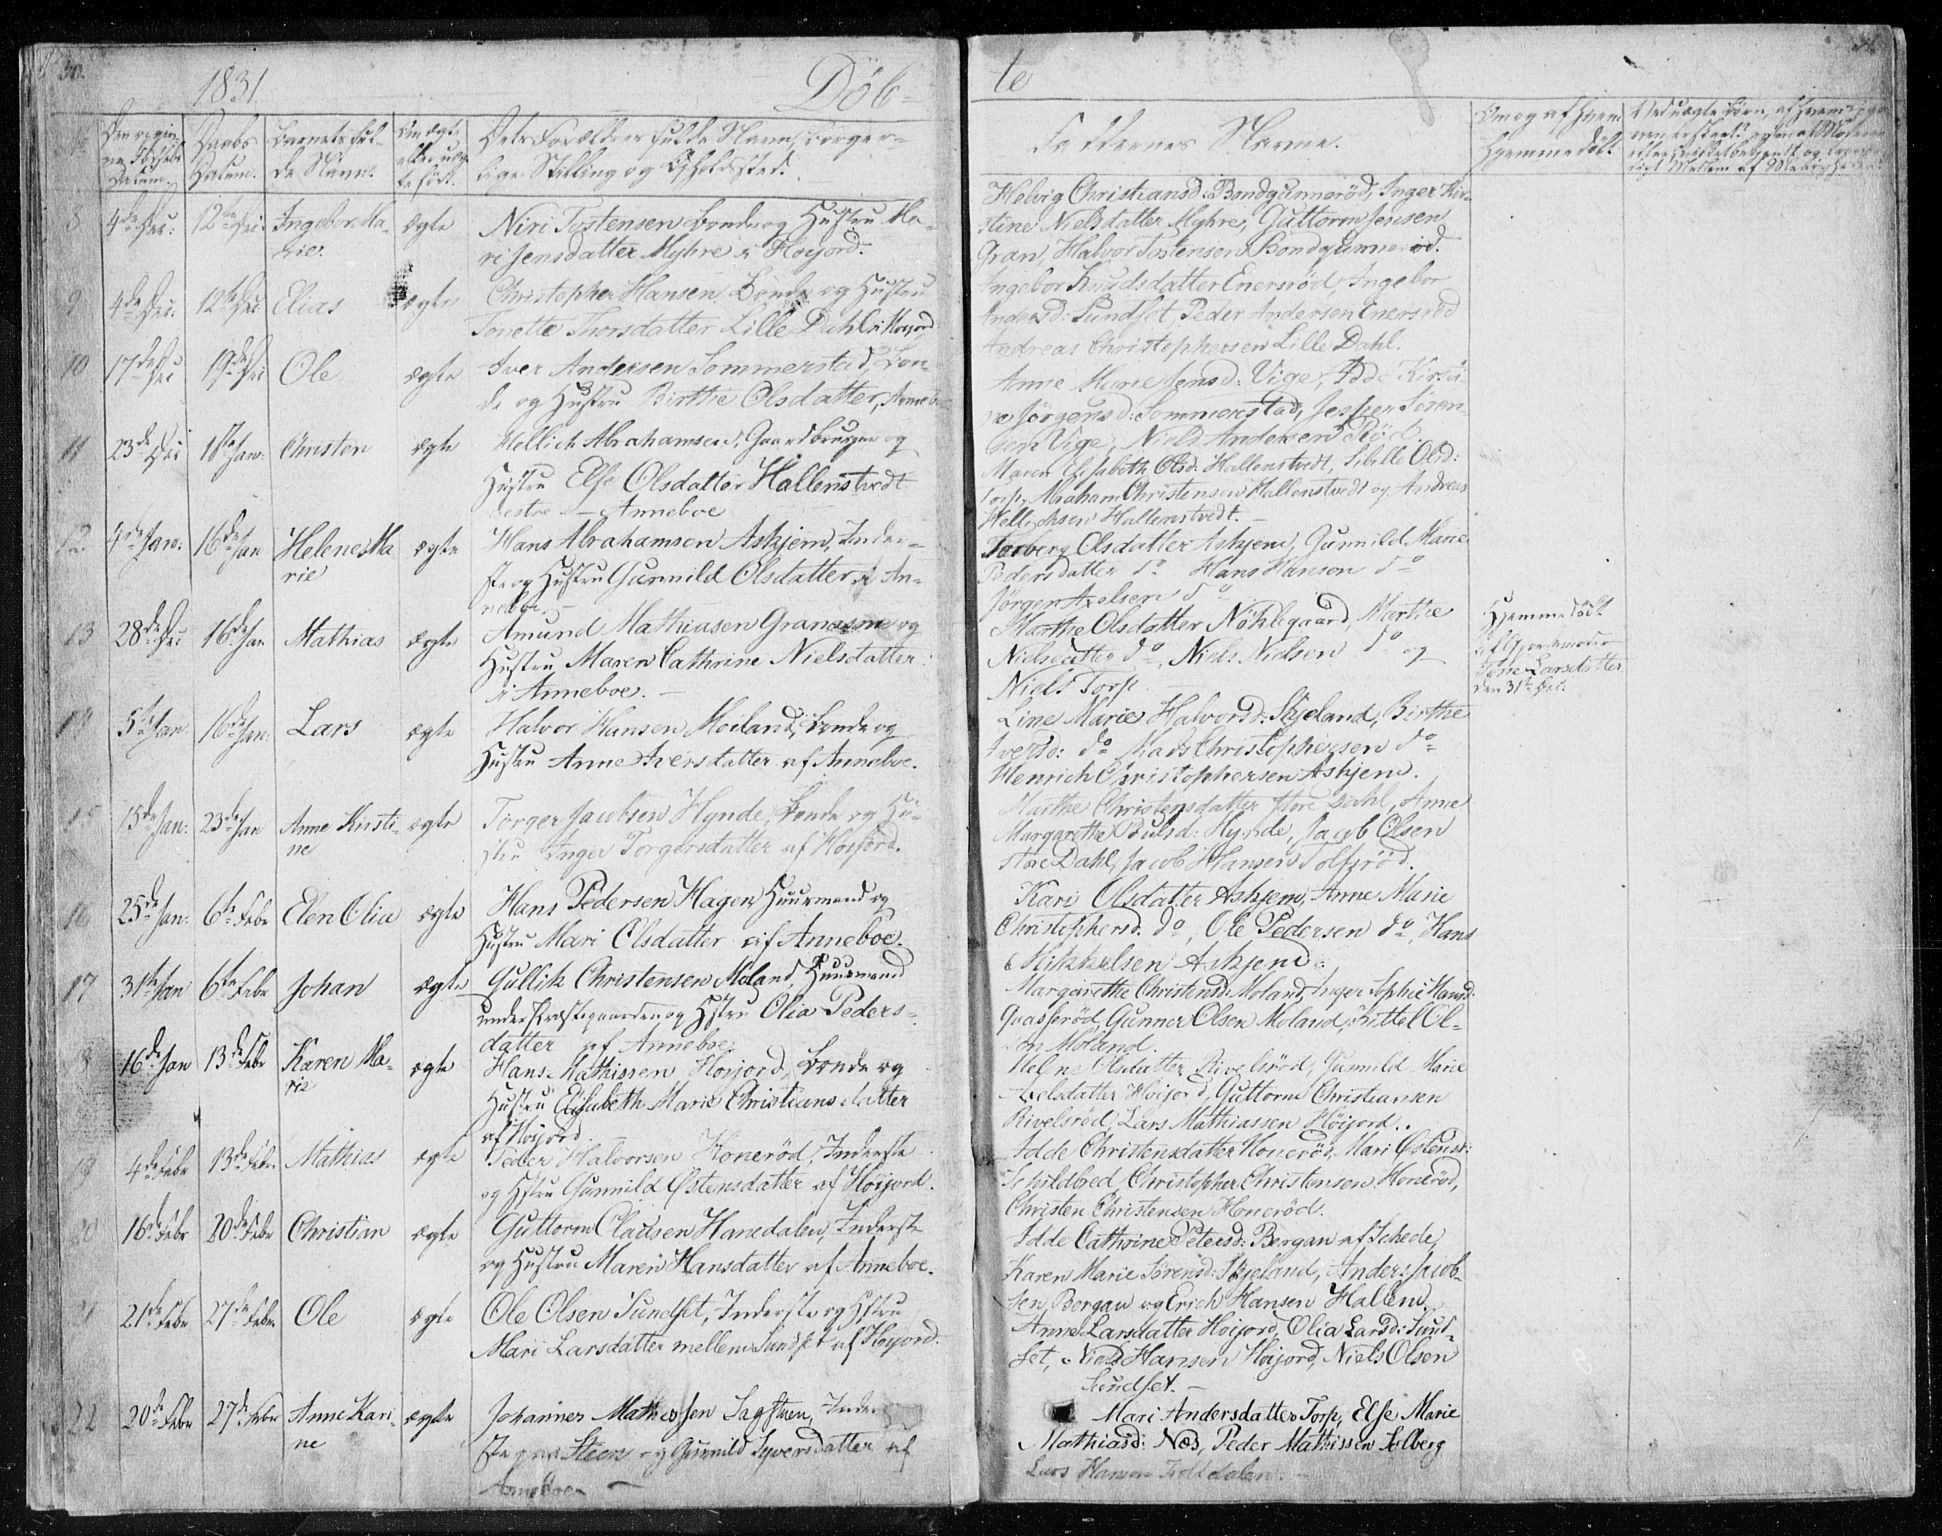 30.
1831.
Döb-
te
No
Den rigtige Fødsels Datum.
Daabs Datum.
Barnets fulde Navn.
Om ægte eller uægte født.
Dets Forældres fulde Navn, Borgerlige Stilling og Opholdsted.
Faddernes Navne.
Om og af hvem Hjemmedøbt.
8 4de Dec: 12te Dec: Ingebor Marie. ægte Niri Tostensen Bonde og Hustru Mari Jensdatter Myhre i Höijord.
Helvig Christiansd: Bondgunnerød, Inger Kirstine Nielsdatter Myhre, Guttorm Jensen
Gran, Halvor Tostensen Bondgunnerød.
9 4de Dec: 12te Dec: Elias ægte Christopher Hansen, Bonde og Hustru
Tonette Thorsdatter Lille Dahl i Höijord
Ingebor Knudsdatter Enersröd, Ingebor
Andersd: Sundset Peder Andersen Enersröd
Andreas Christophersen Lille Dahl.
10 17de Dec 19de Dec Ole ægte Iver Andersen Sommerstad, Bonde og Hustru Birthe Olsdatter, Anneboe
Anne Marie Jensd: Vige, Idde Kirstine Jörgensd: Sommerstad, Jesper Sörensen Vige, Niels Andersen Röd.
11 23de Dec 1ste Jan: Christen ægte Hellich Abrahamsen, Gaardbruger og
Hustru Else Olsdatter Hallenstvedt
vestre — Anneboe
Maren Elisabeth Olsd: Hallenstvedt, Sibille Olsd:
Torp, Abraham Christensen Hallenstvedt og Andreas
Hellichsen Hallenstvedt. —
12 4de Jan: 16de Jan Helene Marie ægte Hans Abrahamsen Askjem, Inderste og Hustru Gunnild Olsdatter i Anneboe. —
Torberg Olsdatter Askjem, Gunnild Marie
Pedersdatter do Hans Hansen do
Jörgen Axelsen do
13 28de Dec 16de Jan Mathias ægte Amund Mathiasen Granaasne og
Hustru Maren Cathrine Nielsdatter
i Anneboe. —
Marthe Olsdatter Nöklegaard, Marthe
Nielsdatter do, Niels Nielsen do og
Niels Torp
Hjemmedöbt
af Gjordemoder
Larsdatter
den 31te Dec:
14 5te Jan 16de Jan: Lars ægte Halvor Hansen Moeland, Bonde og
Hustru Anne Iversdatter af Anneboe.
Line Marie Halvorsd: Skjeland, Birthe
Iversd: do Mads Christophersen do
Henrich Christophersen Askjem.
15 15de Jan: 23de Jan Anne Kirstine ægte Torger Jacobsen Hynde, Bonde og Hustru Inger Torgersdatter af Höijord.
Marthe Christensdatter store Dahl, Anne
Margarethe Poulsd: Hynde, Jacob Olsen
store Dahl, Jacob Hansen Tolfsröd.
16 25de Jan: 6te Febr Elen Olia ægte Hans Pedersen Hagen Huusmand og
Hustru Mari Olsdatter af Anneboe.
Kari Olsdatter Askjem, Anne Marie
Christophersd: do, Ole Pedersen do, Hans
Mikkelsen Askjem.
17 31te Jan 6te Febr Johan ægte Gullik Christensen Moland, Huusmand
under Præstegaarden og Hstru Olia Pedersdatter af Anneboe.
Margarethe Christensd: Moland, Inger Sophie Hansd:
Gaasseröd, Gunner Olsen Moland, Kittel Olsen Moland.
18 16de Jan 13de Febr Karen Marie ægte Hans Mathissen Höijord, Bonde og
Hustru Elisabeth Marie Christiansdatter
af Höijord.
Helene Olsdatter Rivelsröd, Gunnild Marie
Axelsdatter Höijord, Guttorm Christiansen
Rivelsröd, Lars Mathiassen Höijord.
19 4de Febr 13de Febr. Mathias ægte Peder Halvorsen Honeröd, Inderste
og Hstru Gunnild Østensdatter af Höijord.
Idde Christensdatter Honeröd, Mari Østensd:
Schildbred, Christopher Christensen Honeröd,
Christen Christensen Honeröd.
20 16de Febr 20de Febr Christian ægte Guttorm Cladsen Hanedalen, Inderste
og Hustru Maren Hansdatter af Anneboe.
Idde Cathrine Petersd: Bergan af Schede,
Karen Marie Sörensd: Skjeland, Anders Jacobsen Bergan og Erich Hansen Hallem.
21 21de Febr 27de Febr. Ole ægte Ole Olsen Sundset, Inderste og Hstru
Mari Larsdatter mellem Sundset af Höijord.
Anne Larsdatter Höijord, Olia Larsd: Sundset, Niels Hansen Höijord, Niels Olsen
Sundset. —
22 20de Febr 27de Febr Anne Karine ægte Johannes Mathissen Sagstuen, Inderste Steen og Gunnild Syversdatter af
Anneboe —
Mari Andersdatter Torp, Else Marie
Mathiasd: Næs, Peder Mathissen Solberg
Lars Hansen Trolldalen. —